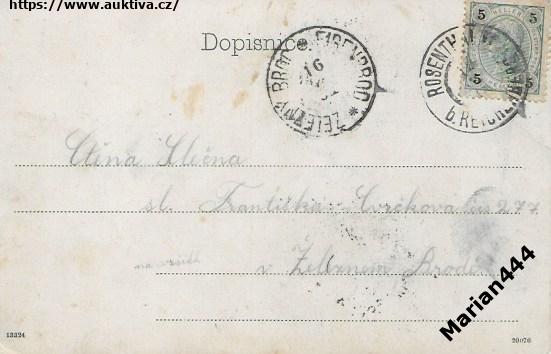 https://www.auktiva.cz/
Dopisnice.
5 5
5 5
EISENBROD * ŽELEZNÝ BROD *
16
ROSENTHAL
b. REICHENB
Ctěná Slečna
sl. Františka Cvrčková čís 277
na vrších
v Železném Brodě
Marian444
13324
20076